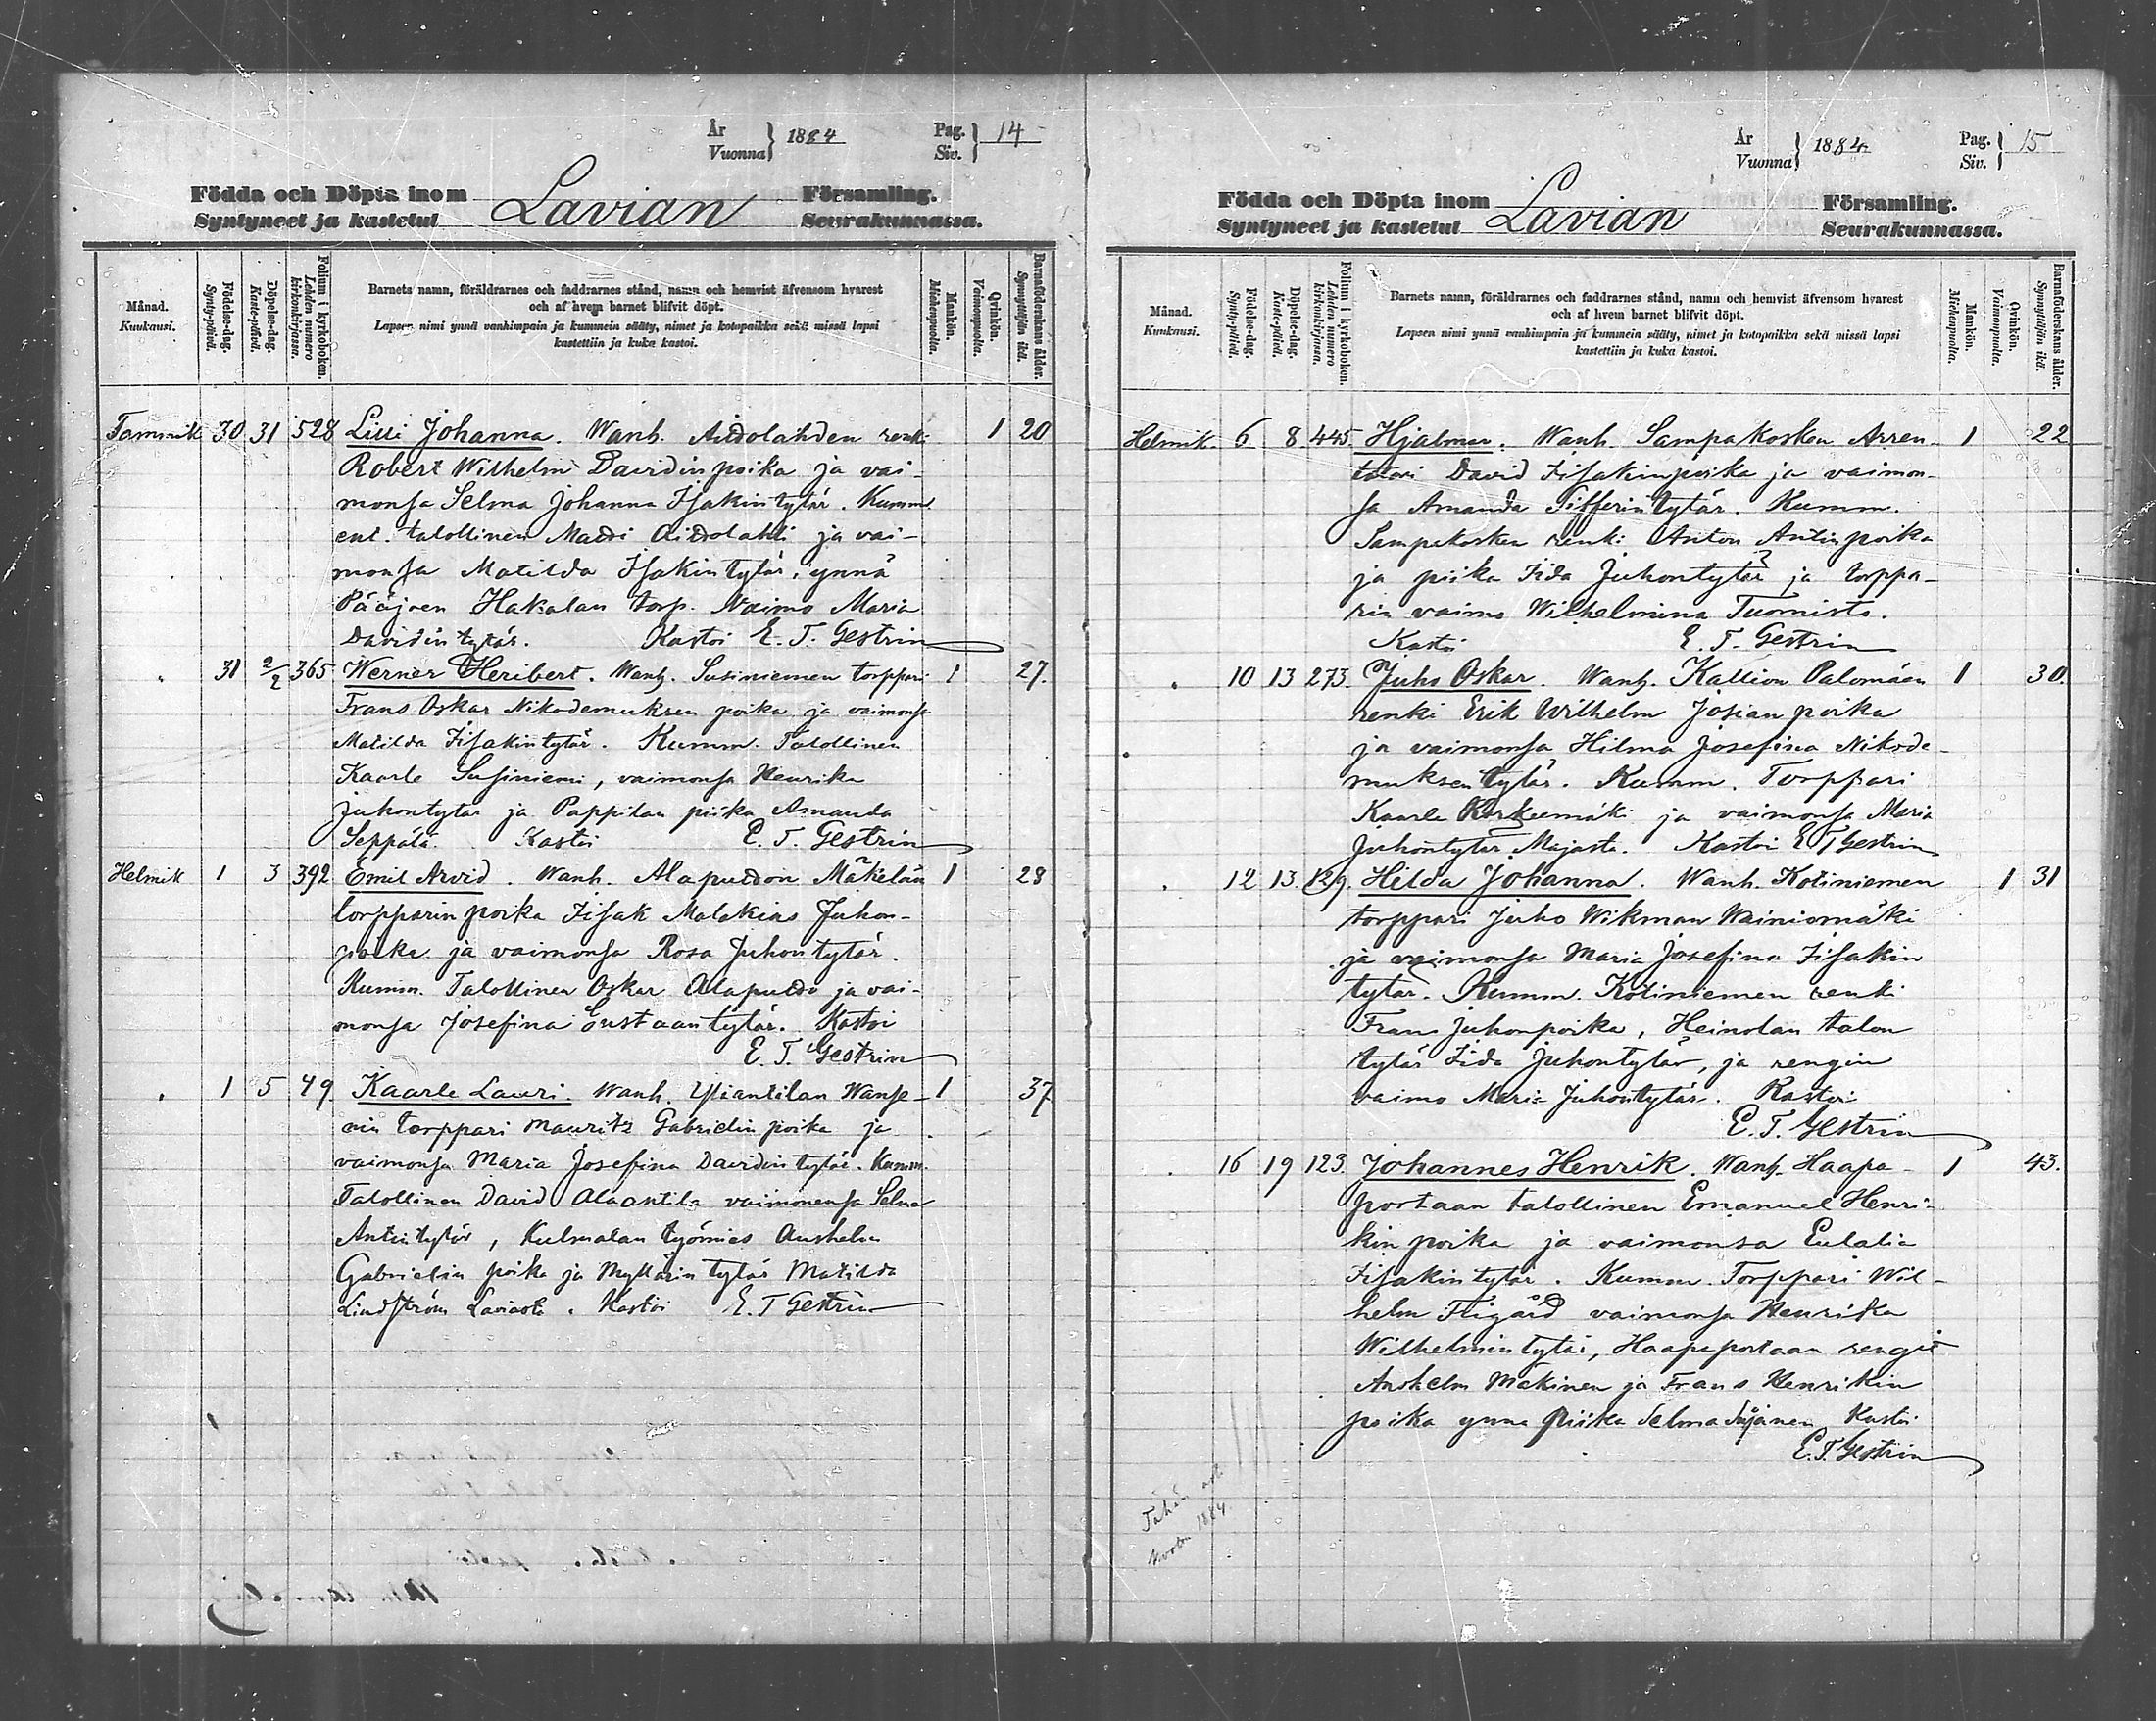 År
Vuonna } 1884
Pag.
Siv. } 14
Födda och Döpta inom
Syntyneet ja kastetut
Lavian
Församling.
Seurakunnassa.
Månad.
Kuukausi.
Födelse-dag.
Synty-päivä.
Döpelse-dag.
Kaste-päivä.
Folium i kyrkoboken.
Lehden numero
kirkonkirjassa.
Barnets namn, föräldrarnes och faddrarnes stånd, namn och hemvist äfvensom hvarest
och af hvem barnet blifvit döpt.
Lapsen nimi ynnä vanhimpain ja kummein sääty, nimet ja kotopaikka sekä missä lapsi
kastettiin ja kuka kastoi.
Mankön.
Miehenpuolta.
Qvinkön.
Vaimonpuolta.
Barnaföderskans ålder.
Synnyttäjän ikä.
Tammik 30 31 528 Lilli Johanna. Wanh. Aidolahden renki 1 20
Robert Wilhelm Davidin poika ja vai-
monsa Selma Johanna Isakintytär. Kumm.
ent. talollinen Matti Aittolahti ja vai-
monsa Matilda Isakintytär, ynnä
Pääjoen Hakalan torp. Vaimo Maria
Davidin tytär. Kastoi E. T. Gestrin
" 31 2/2 365 Werner Heribert. Wanh. Susiniemen torppari 1 27.
Frans Oskar Nikodemuksen poika ja vaimonsa
Matilda Iisakintytär. Kumm. Talollinen
Kaarle Susiniemi, vaimonsa Henrika
Juhontytär ja Pappilan piika Amanda
Seppälä. Kastoi E. T. Gestrin
Helmik 1 3 392 Emil Arvid. Wanh. Alapuddon Mäkelän 1 28
torpparin poika Iisak Malakias Juhon-
poika ja vaimonsa Rosa Juhontytär.
Kumm. Talollinen Oskar Alapudo ja vai-
monsa Josefina Eustaantytär. Kastoi
E. T. Gestrin
" 1 5 49 Kaarle Lauri. Wanh. Yliantilan 1 37
torppari Mauritz Gabrielin poika ja
vaimonsa Maria Josefina Davidin tytär. Kumm.
Talollinen David Alaantila vaimonensa Selma
Antintytär, Kulmalan työmies Anshelm
Gabrielin poika ja Myllärin tytär Matilda
Lindström Laviasta. Kastoi E. T Gestrin
År
Vuonna } 1884
Pag.
Siv. } 15
Födda och Döpta inom
Syntyneet ja kastetut
Lavian
Församling.
Seurakunnassa.
Månad.
Kuukausi.
Födelse-dag.
Synty-päivä.
Döpelse-dag.
Kaste-päivä.
Folium i kyrkoboken.
Lehden numero
kirkonkirjassa.
Barnets namn, föräldrarnes och faddrarnes stånd, namn och hemvist äfvensom hvarest
och af hvem barnet blifvit döpt.
Lapsen nimi ynnä vanhimpain ja kummein sääty, nimet ja kotopaikka sekä missä lapsi
kastettiin ja kuka kastoi.
Mankön.
Miehenpuolta.
Qvinkön.
Vaimonpuolta.
Barnaföderskans ålder.
Synnyttäjän ikä.
Helmik. 6 8 445 Hjalmar. Wanh. Sampakosken Arren- 1 22
tatori David Iisakinpoika ja vaimon-
sa Amanda Sifferintytär. Kumm.
Sampakosken renki Anton Antinpoika
ja piika Iida Juhontytär ja torppa-
rin vaimo Wilhelmina Tuomisto.
Kastoi E. T. Gestrin
" 10 13 273. Juho Oskar. Wanh. Kallion Palomäen 1 30.
renki Erik Wilhelm Josian poika
ja vaimonsa Hilma Josefina Nikode-
muksentytär. Kumm. Torppari
Kaarle Korkeemäki ja vaimonsa Maria
Juhontytär Majasta. Kastoi E T Gestrin
" 12 13. 129. Hilda Johanna. Wanh. Kotiniemen 1 31
torppari Juho Wikman Wainiomäki
ja vaimonsa Maria Josefina Iisakin
tytär. Kumm. Kotiniemen renki
Frans Juhonpoika, Heinolan talon
tytär Iida Juhontytär, ja rengin
vaimo Maria Juhontytär. Kastoi
E. T. Gestrin
" 16 19 123. Johannes Henrik. Wanh. Haapa- 1 43.
portaan talollinen Emanuel Henri-
kin poika ja vaimonsa Eulalia
Iisakintytär. Kumm. Torppari Wil-
helm Fligård vaimonsa Henrika
Wilhelmintytär, Haapaportaan rengit
Anshelm Mäkinen ja Frans Henrikin
poika ynnä piika Selma Kastoi
E. T. Gestrin
Tähän asti
vuoteen 1884.